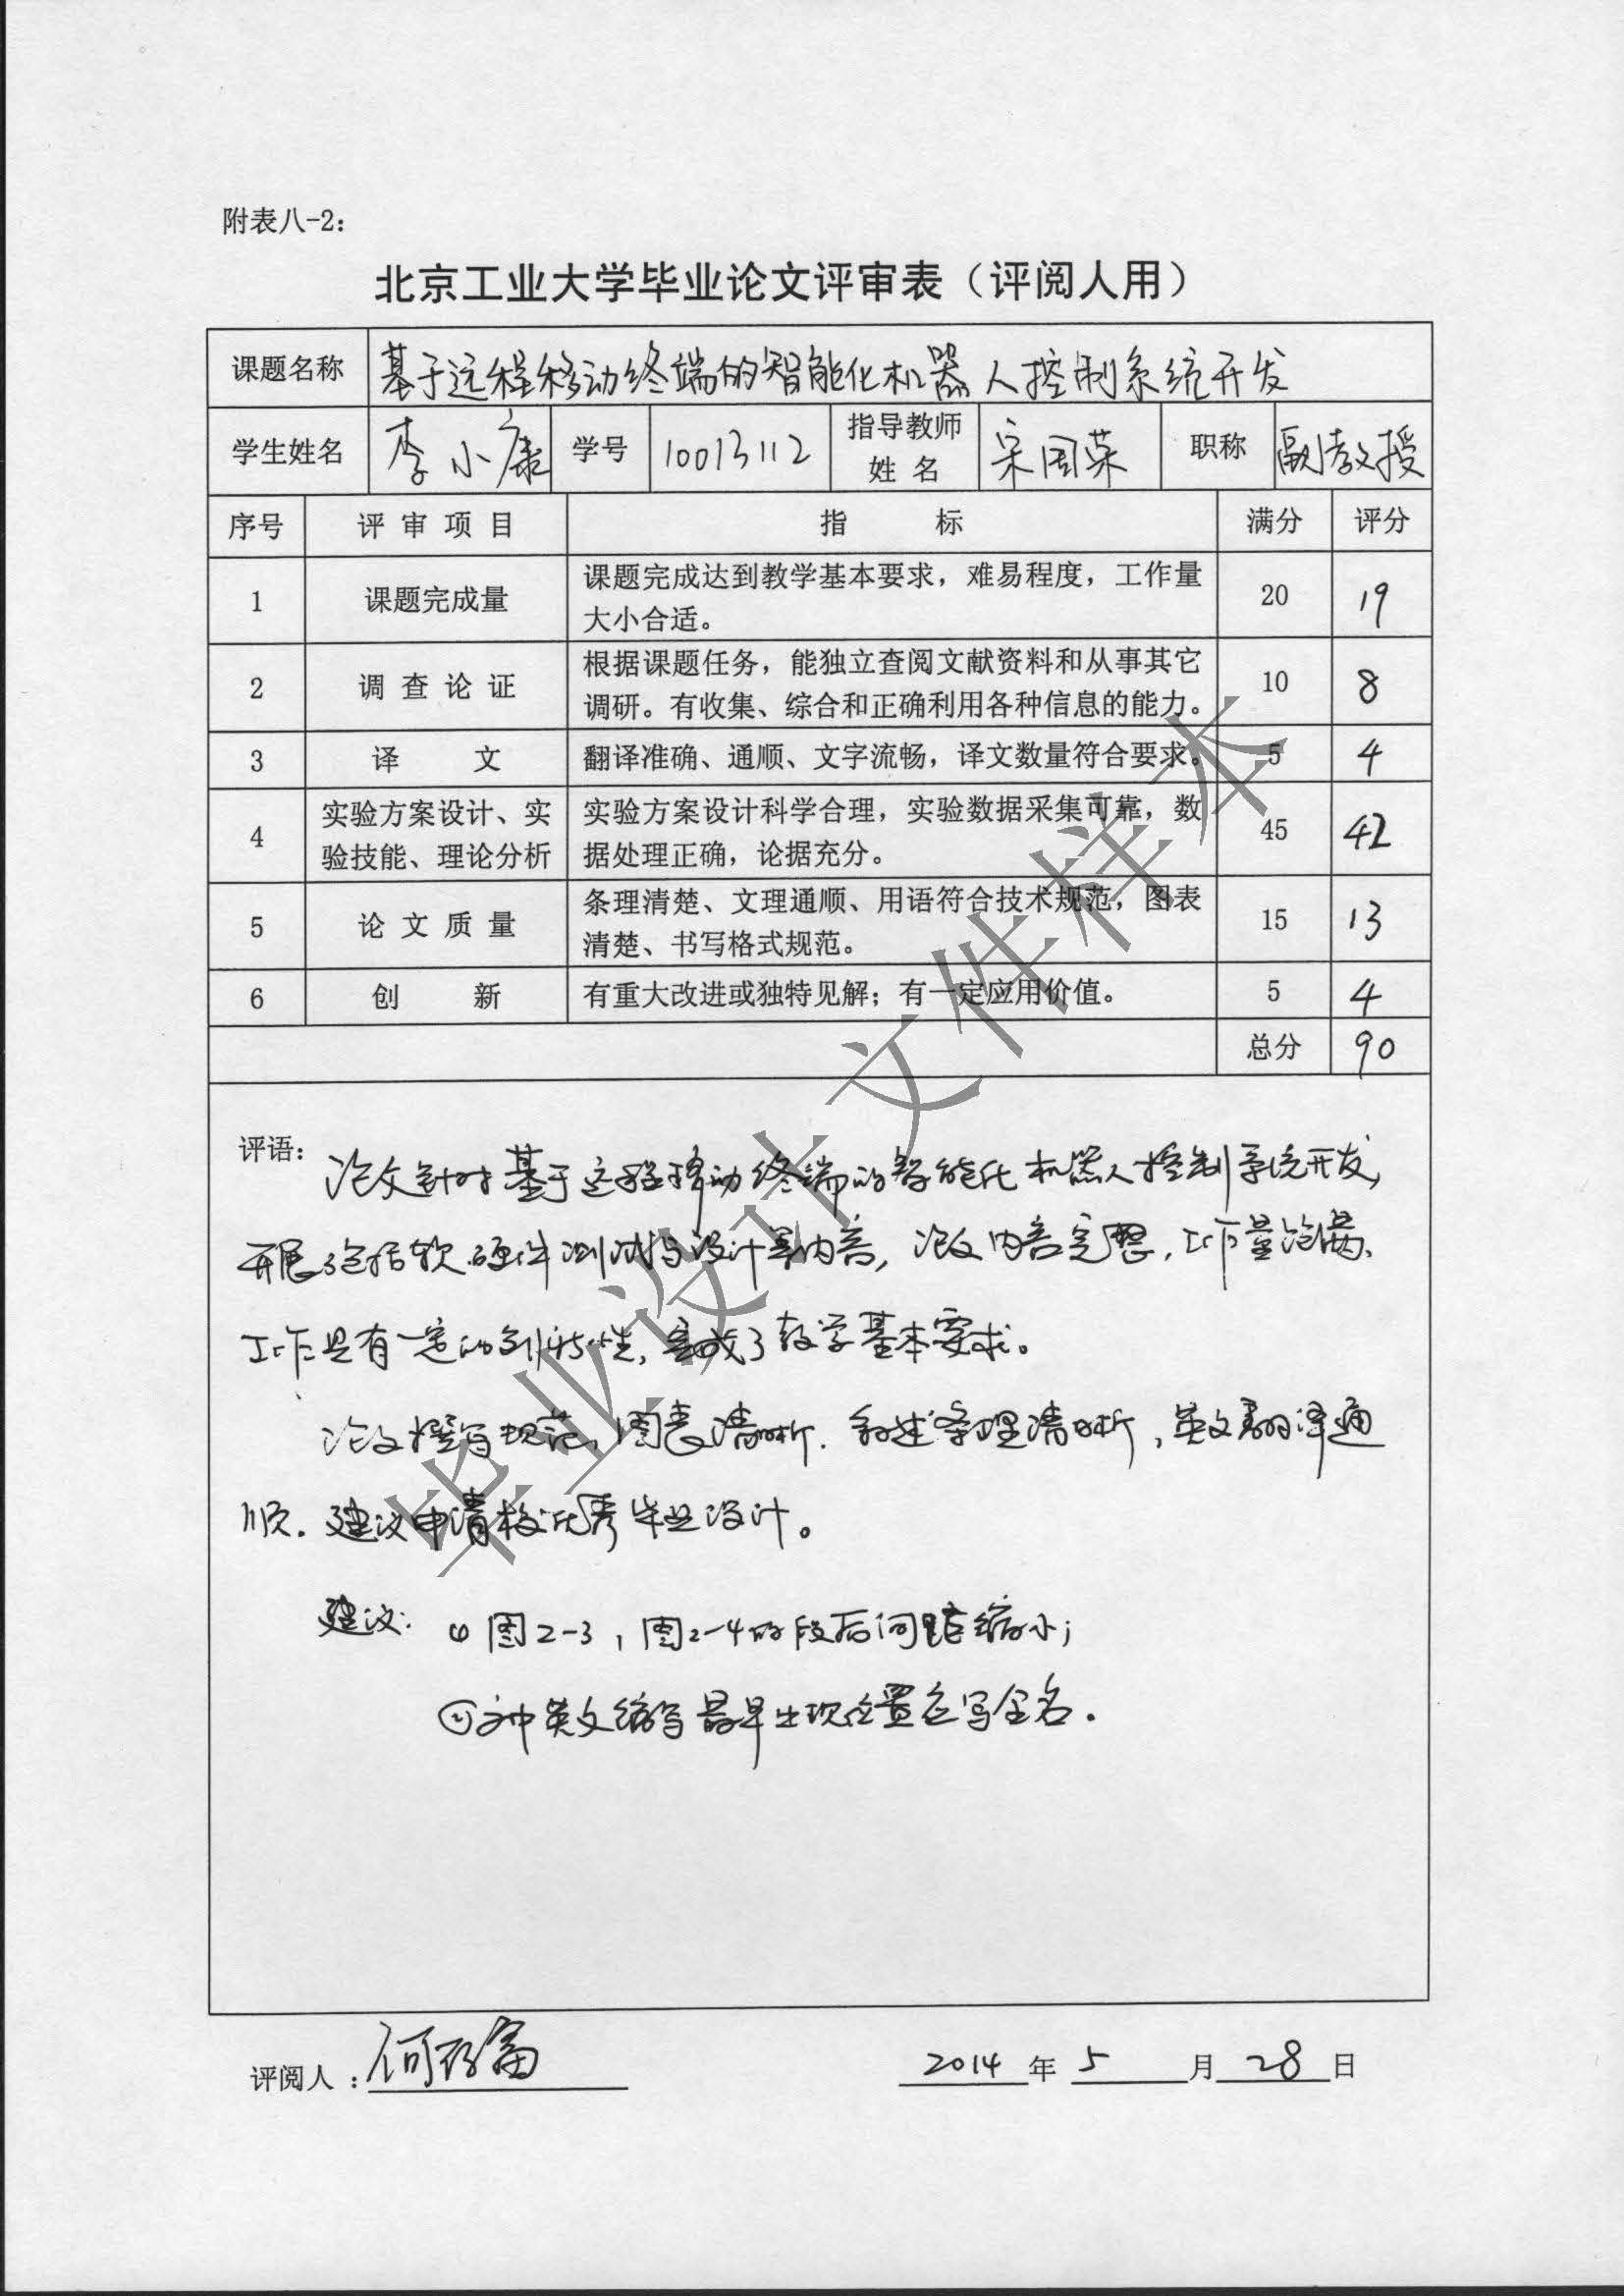 附表八-2：
北京工业大学毕业论文评审表（评阅人用）
课题名称 基于远程移动终端的智能化机器人控制系统开发
学生姓名 李小康 学号 10013112 指导教师姓名 宋国荣 职称 副教授
序号 评审项目 指标 满分 评分
1 课题完成量 课题完成达到教学基本要求，难易程度，工作量 20 19
大小合适。
2 调查论证 根据课题任务，能独立查阅文献资料和从事其它 10 8
调研。有收集、综合和正确利用各种信息的能力。
3 译文 翻译准确、通顺、文字流畅，译文数量符合要求。 5 4
4 实验方案设计、实 实验方案设计科学合理，实验数据采集可靠，数 45 42
验技能、理论分析 据处理正确，论据充分。
5 论文质量 条理清楚、文理通顺、用语符合技术规范，图表 15 13
清楚、书写格式规范。
6 创新 有重大改进或独特见解；有一定应用价值。 5 4
总分 90
评语：
论文针对基于远程移动终端的智能化机器人控制系统开发，
开展了包括软、硬件测试与设计等内容，论文内容完整，工作量饱满、
工作具有一定的创新性，完成了教学基本要求。
论文撰写规范，图表清晰，叙述条理清晰，英文翻译通
顺。建议申请校优秀毕业设计。
建议：① 图2-3，图2-4的段后间距缩小；
②文中英文缩写最早出现位置应写全名。
评阅人：何存富 2014年5月28日
毕业设计文件样本